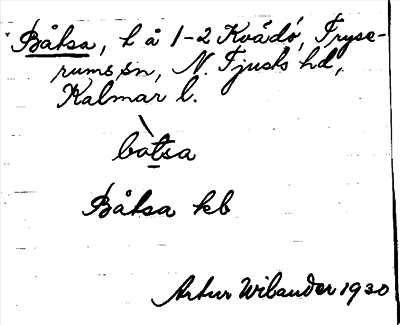 Båtsa, h å 1-2 Kvädö, Tryse-
rums sn, N. Tjusts hd,
Kalmar l.
bòtsa
Båtsa kb
Artur Wilander 1930